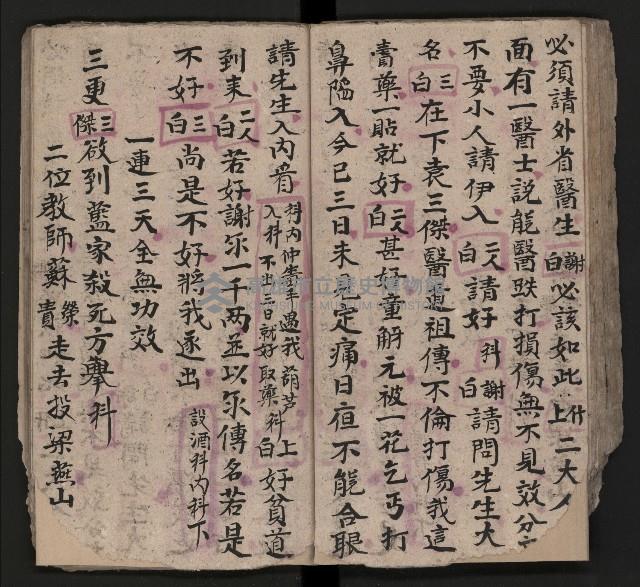 必須請外省醫生謝白必該如此什上二大人
面有一醫士説能醫跌打損傷無不見效分
不要小人請伊入二人白請好科謝白請問先生大
名三白在下袁三傑醫道祖傳不倫打傷我這
膏藥一貼就好二人白甚好童觧元被一花乞丐打
鼻陥入今已三日未定痛日夜不能合眼
請先生入內看科內仲
入科不出三日就好取藥科
遇我葫芦上白好貧道
到来二人白若好謝尔一千两並以尔傳名若是
不好三白尚是不好將我逐出設酒科內科下
一連三天全無功效
三更三傑欲到藍家殺死方擧科
二位教師蘇榮貴走去投梁燕山